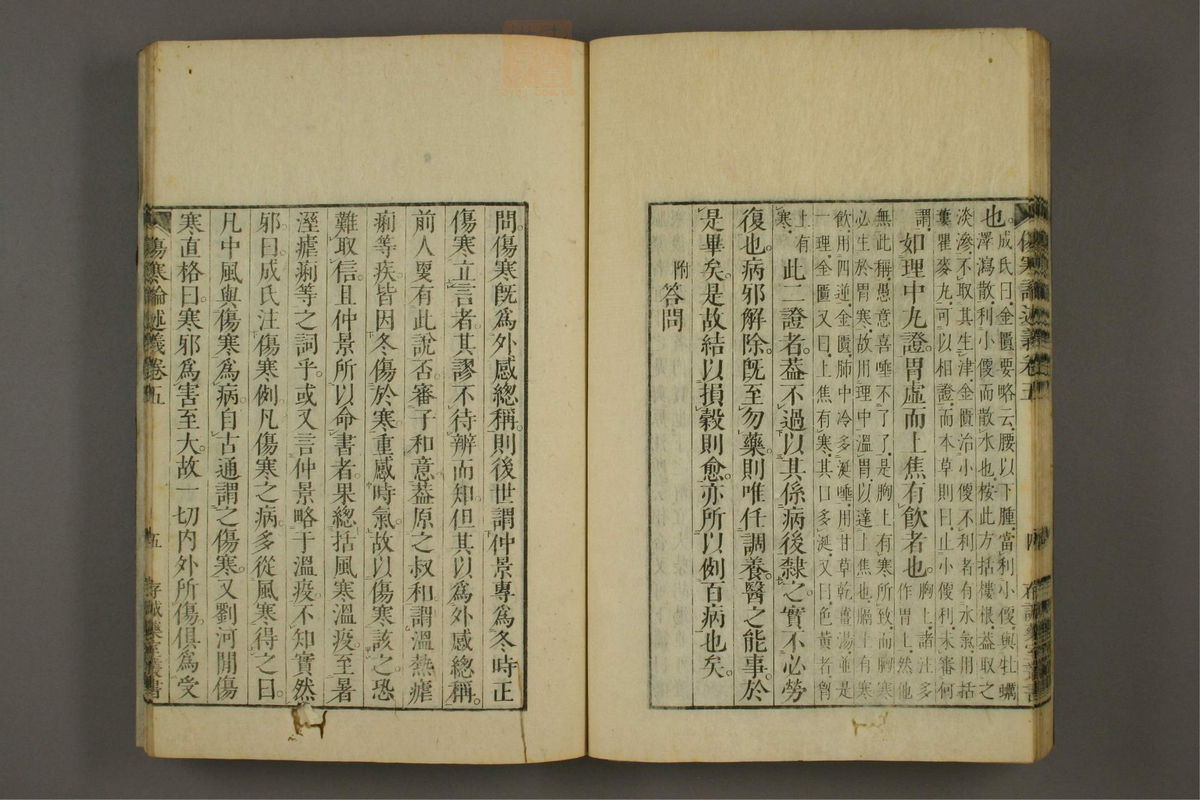 傷寒論述義卷五 四 存誠藥室叢書
也。成氏曰金匱要略云腰以下腫當利小便與牡蠣
澤瀉散利小便而散水也桉此方括樓根葢取之
淡滲不取其生津金匱治小便不利者有水氣用括
蔞瞿麥丸可以相證而本草則曰止小便利未審何
謂 如理中丸證胃虛而上焦有飲者也。胸上諸注多
作胃上然他
無此稱愚意喜唾不了了是胸上有寒所致而胸寒
必生於胃寒故用理中溫胃以達上焦也膈上有寒
飲用四逆金匱肺中冷多涎唾用甘草乾薑湯並是
一理金匱又曰上焦有寒其口多涎又曰色黃者胸
上有
寒 此二證者葢不過以其係病後隸之實不必勞
復也病邪解除旣至勿藥則唯任調養醫之能事於
是畢矣是故結以損穀則愈亦所以例百病也矣。
附答問
問傷寒旣爲外感總稱則後世謂仲景專爲冬時正
傷寒立言者其謬不待辨而知但其以爲外感總稱
前人更有此說否審子和意葢原之叔和謂溫熱瘧
痢等疾皆因冬傷於寒重感時氣故以傷寒該之恐
難取信且仲景所以命書者果總括風寒溫疫至暑
溼瘧痢等之詞乎或又言仲景略于溫疫不知實然
邪曰成氏注傷寒例凡傷寒之病多從風寒得之曰
凡中風與傷寒爲病自古通謂之傷寒又劉河閒傷
寒直格曰寒邪爲害至大故一切內外所傷俱爲受
傷寒論述義卷五 五 存誠藥室叢書